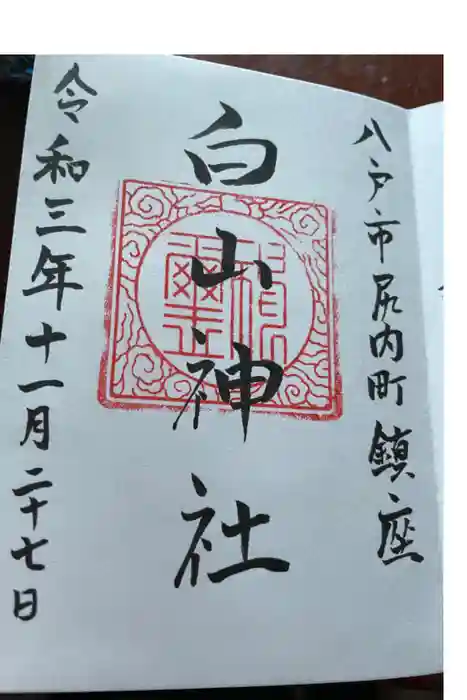 八戸市尻内町鎮座
白山神社
令和三年十一月二十七日